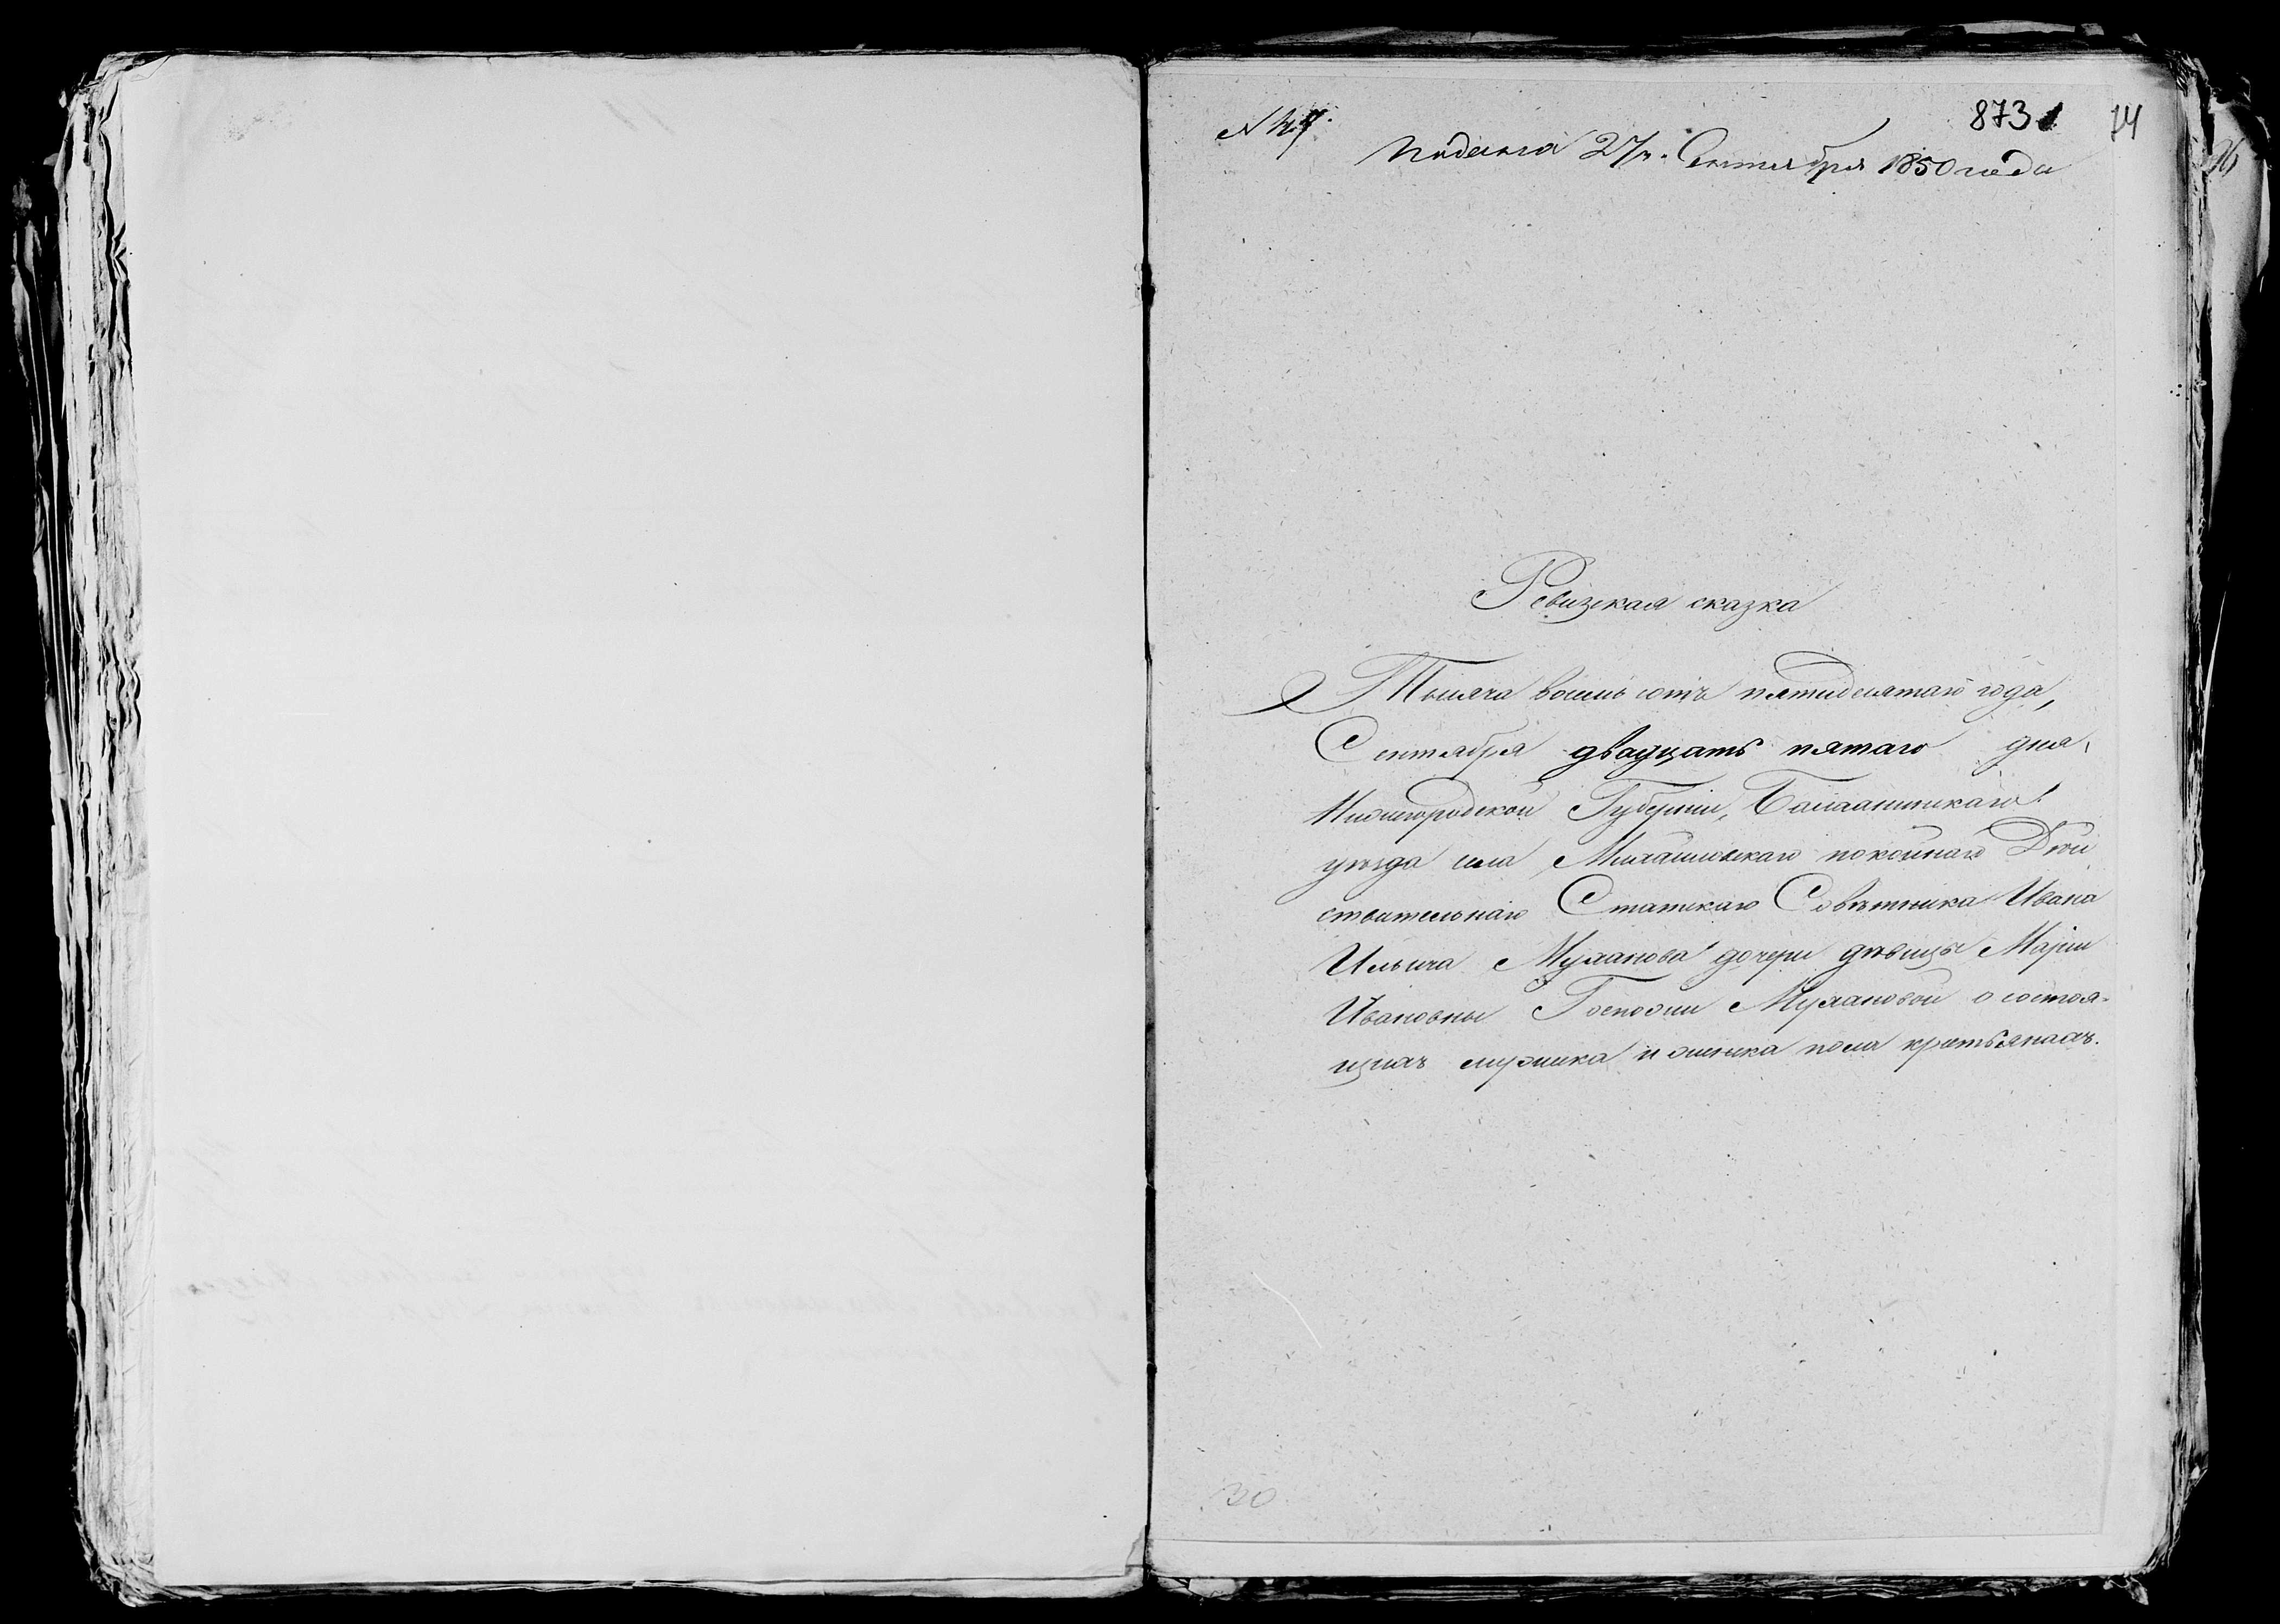 873 74
подана 27го Сентября 1850 года
Ревизская сказка
Тысяча восемь сотъ пятидесятаго года,
Сентября двадцать пятаго дня,
Нижегородской Губерніи, Балахнинскаго
уѣзда села Михайловскаго покойнаго Дѣй
ствительнаго Статскаго Совѣтника Ивана
Ильича Муханова дочери дѣвицы Маріи
Ивановны Госпожи Мухановой о состоя-
щихъ мужска и женска пола крестьянахъ.
30